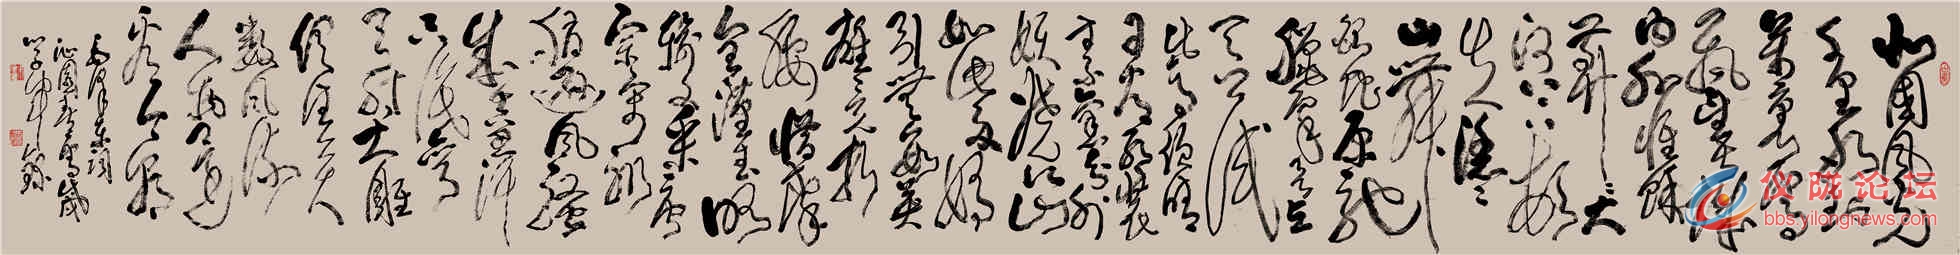 北国风光
千里冰封
万里雪
飘望长城
内外惟余
莽莽大
河上下顿
失滔滔
山舞
银蛇原驰
蜡象欲与
天公试
比高须晴
日看红装
素裹分外
妖娆江山
如此多娇
引无数英
雄竞折
腰惜秦
皇汉武略
输文采唐
宗宋祖
稍逊风骚
成吉思汗
只识弯
弓射大雕
俱往矣
数风流
人物还
看今朝
毛泽东词
沁园春雪
仪陇论坛
bbs.yilongnews.com